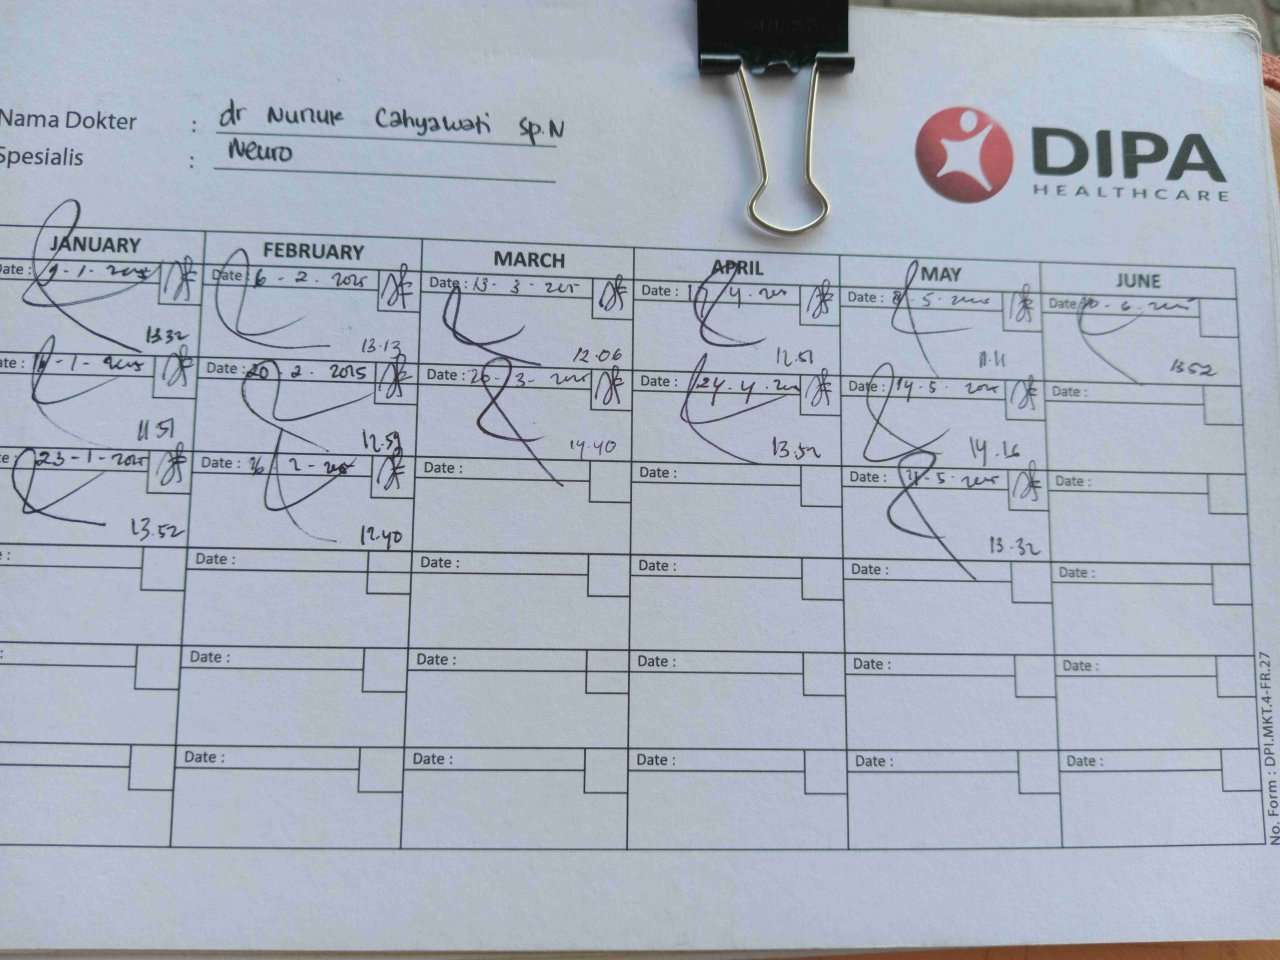 Nama Dokter : dr Nunuk Cahyawati Sp.N
Spesialis : Neuro
DIPA
HEALTHCARE
JANUARY FEBRUARY MARCH APRIL MAY JUNE
Date : 9-1-2025 Date : 6-2-2025 Date : 13-3-2025 Date : 4-2025 Date : 8-5-2025 Date : 6-2025
13.32 13.13 12.06 12.51 11.11 13.52
-1-2025 Date : 20-2-2025 Date : 26-3-2025 Date : 24-4-2025 Date : 14-5-2025 Date :
11.51 12.59 14.40 13.52 14.16
23-1-2025 Date : 26-2-2025 Date : Date : Date : 21-5-2025 Date :
13.52 12.40 13.32
Date : Date : Date : Date : Date :
Date : Date : Date : Date : Date :
Date : Date : Date : Date : Date :
No. Form : DPI.MKT.4-FR.27